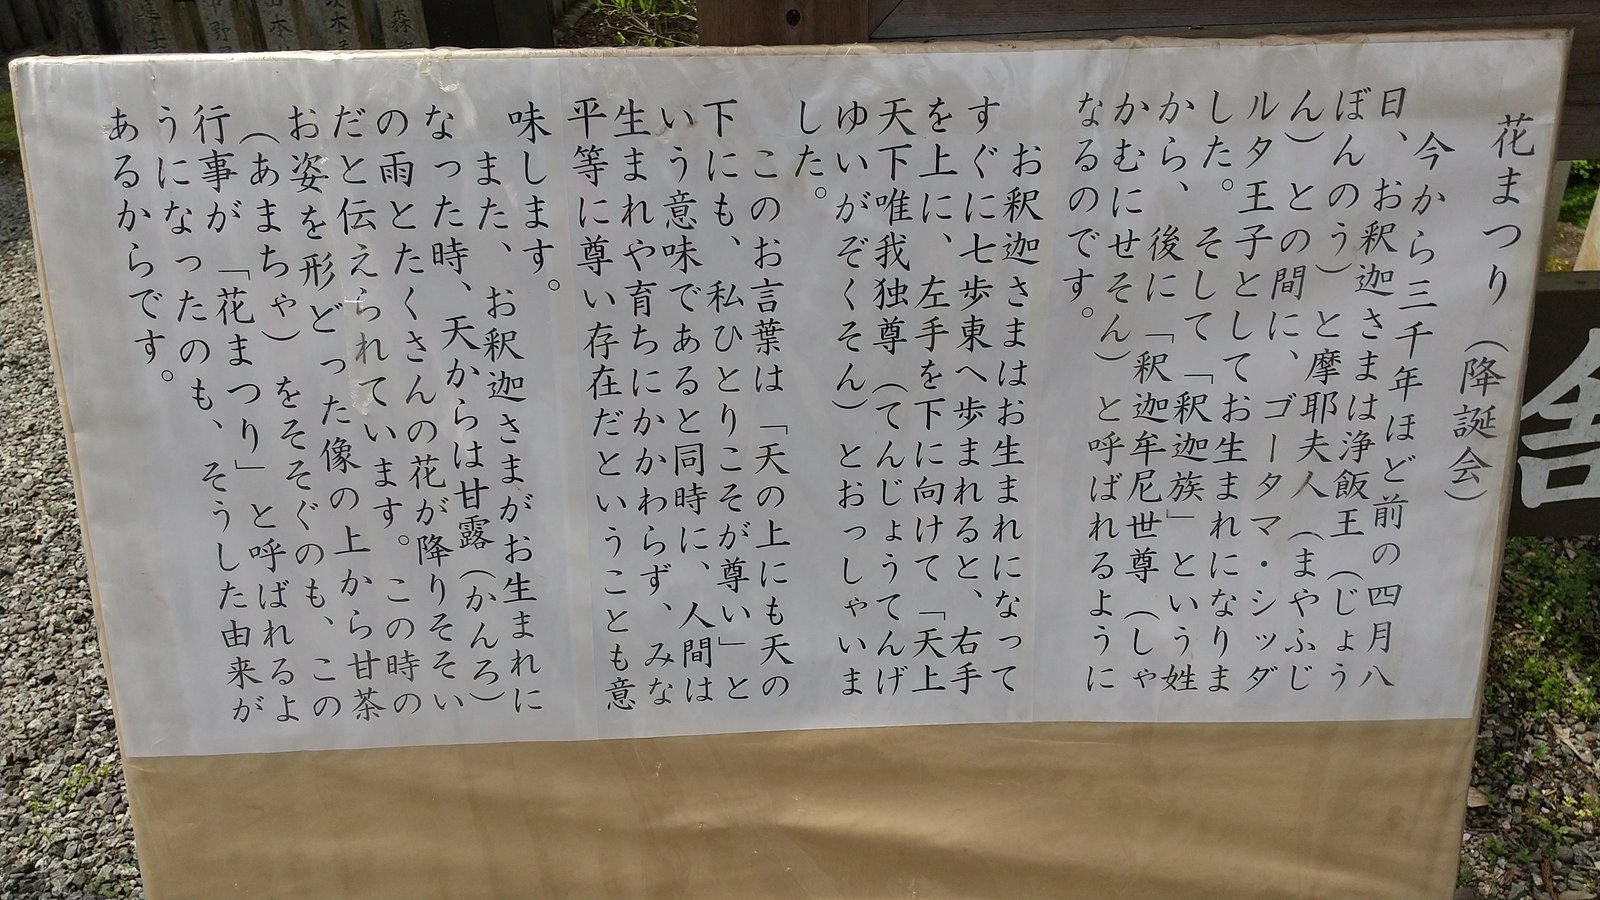 花まつり（降誕会）
今から三千年ほど前の四月八
日、お釈迦さまは浄飯王（じょう
ぼんのう）と摩耶夫人（まやふじ
ん）との間に、ゴータマ・シッダ
ルタ王子としてお生まれになりま
した。そして「釈迦族」という姓
から、後に「釈迦牟尼世尊（しゃ
かむにせそん）と呼ばれるように
なるのです。
お釈迦さまはお生まれになって
すぐに七歩東へ歩まれると、右手
を上に、左手を下に向けて「天上
天下唯我独尊（てんじょうてんげ
ゆいがぞくそん）とおっしゃいま
した。
このお言葉は「天の上にも天の
下にも、私ひとりこそが尊い」と
いう意味であると同時に、人間は
生まれや育ちにかかわらず、みな
平等に尊い存在だということも意
味します。
また、お釈迦さまがお生まれに
なった時、天からは甘露（かんろ）
の雨とたくさんの花が降りそそい
だと伝えられています。この時の
お姿を形どった像の上から甘茶
（あまちゃ）をそそぐのも、この
行事が「花まつり」と呼ばれるよ
うになったのも、そうした由来が
あるからです。